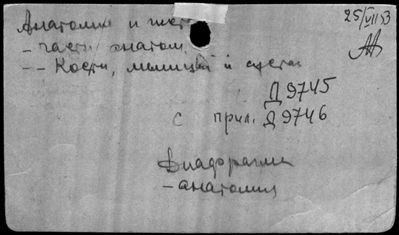 Анатомия и
25/VII 53
- части анатом.
-- Кости, мышцы и суста
Д 9745
с прил. Д 9746
Диафрагма
- анатомия